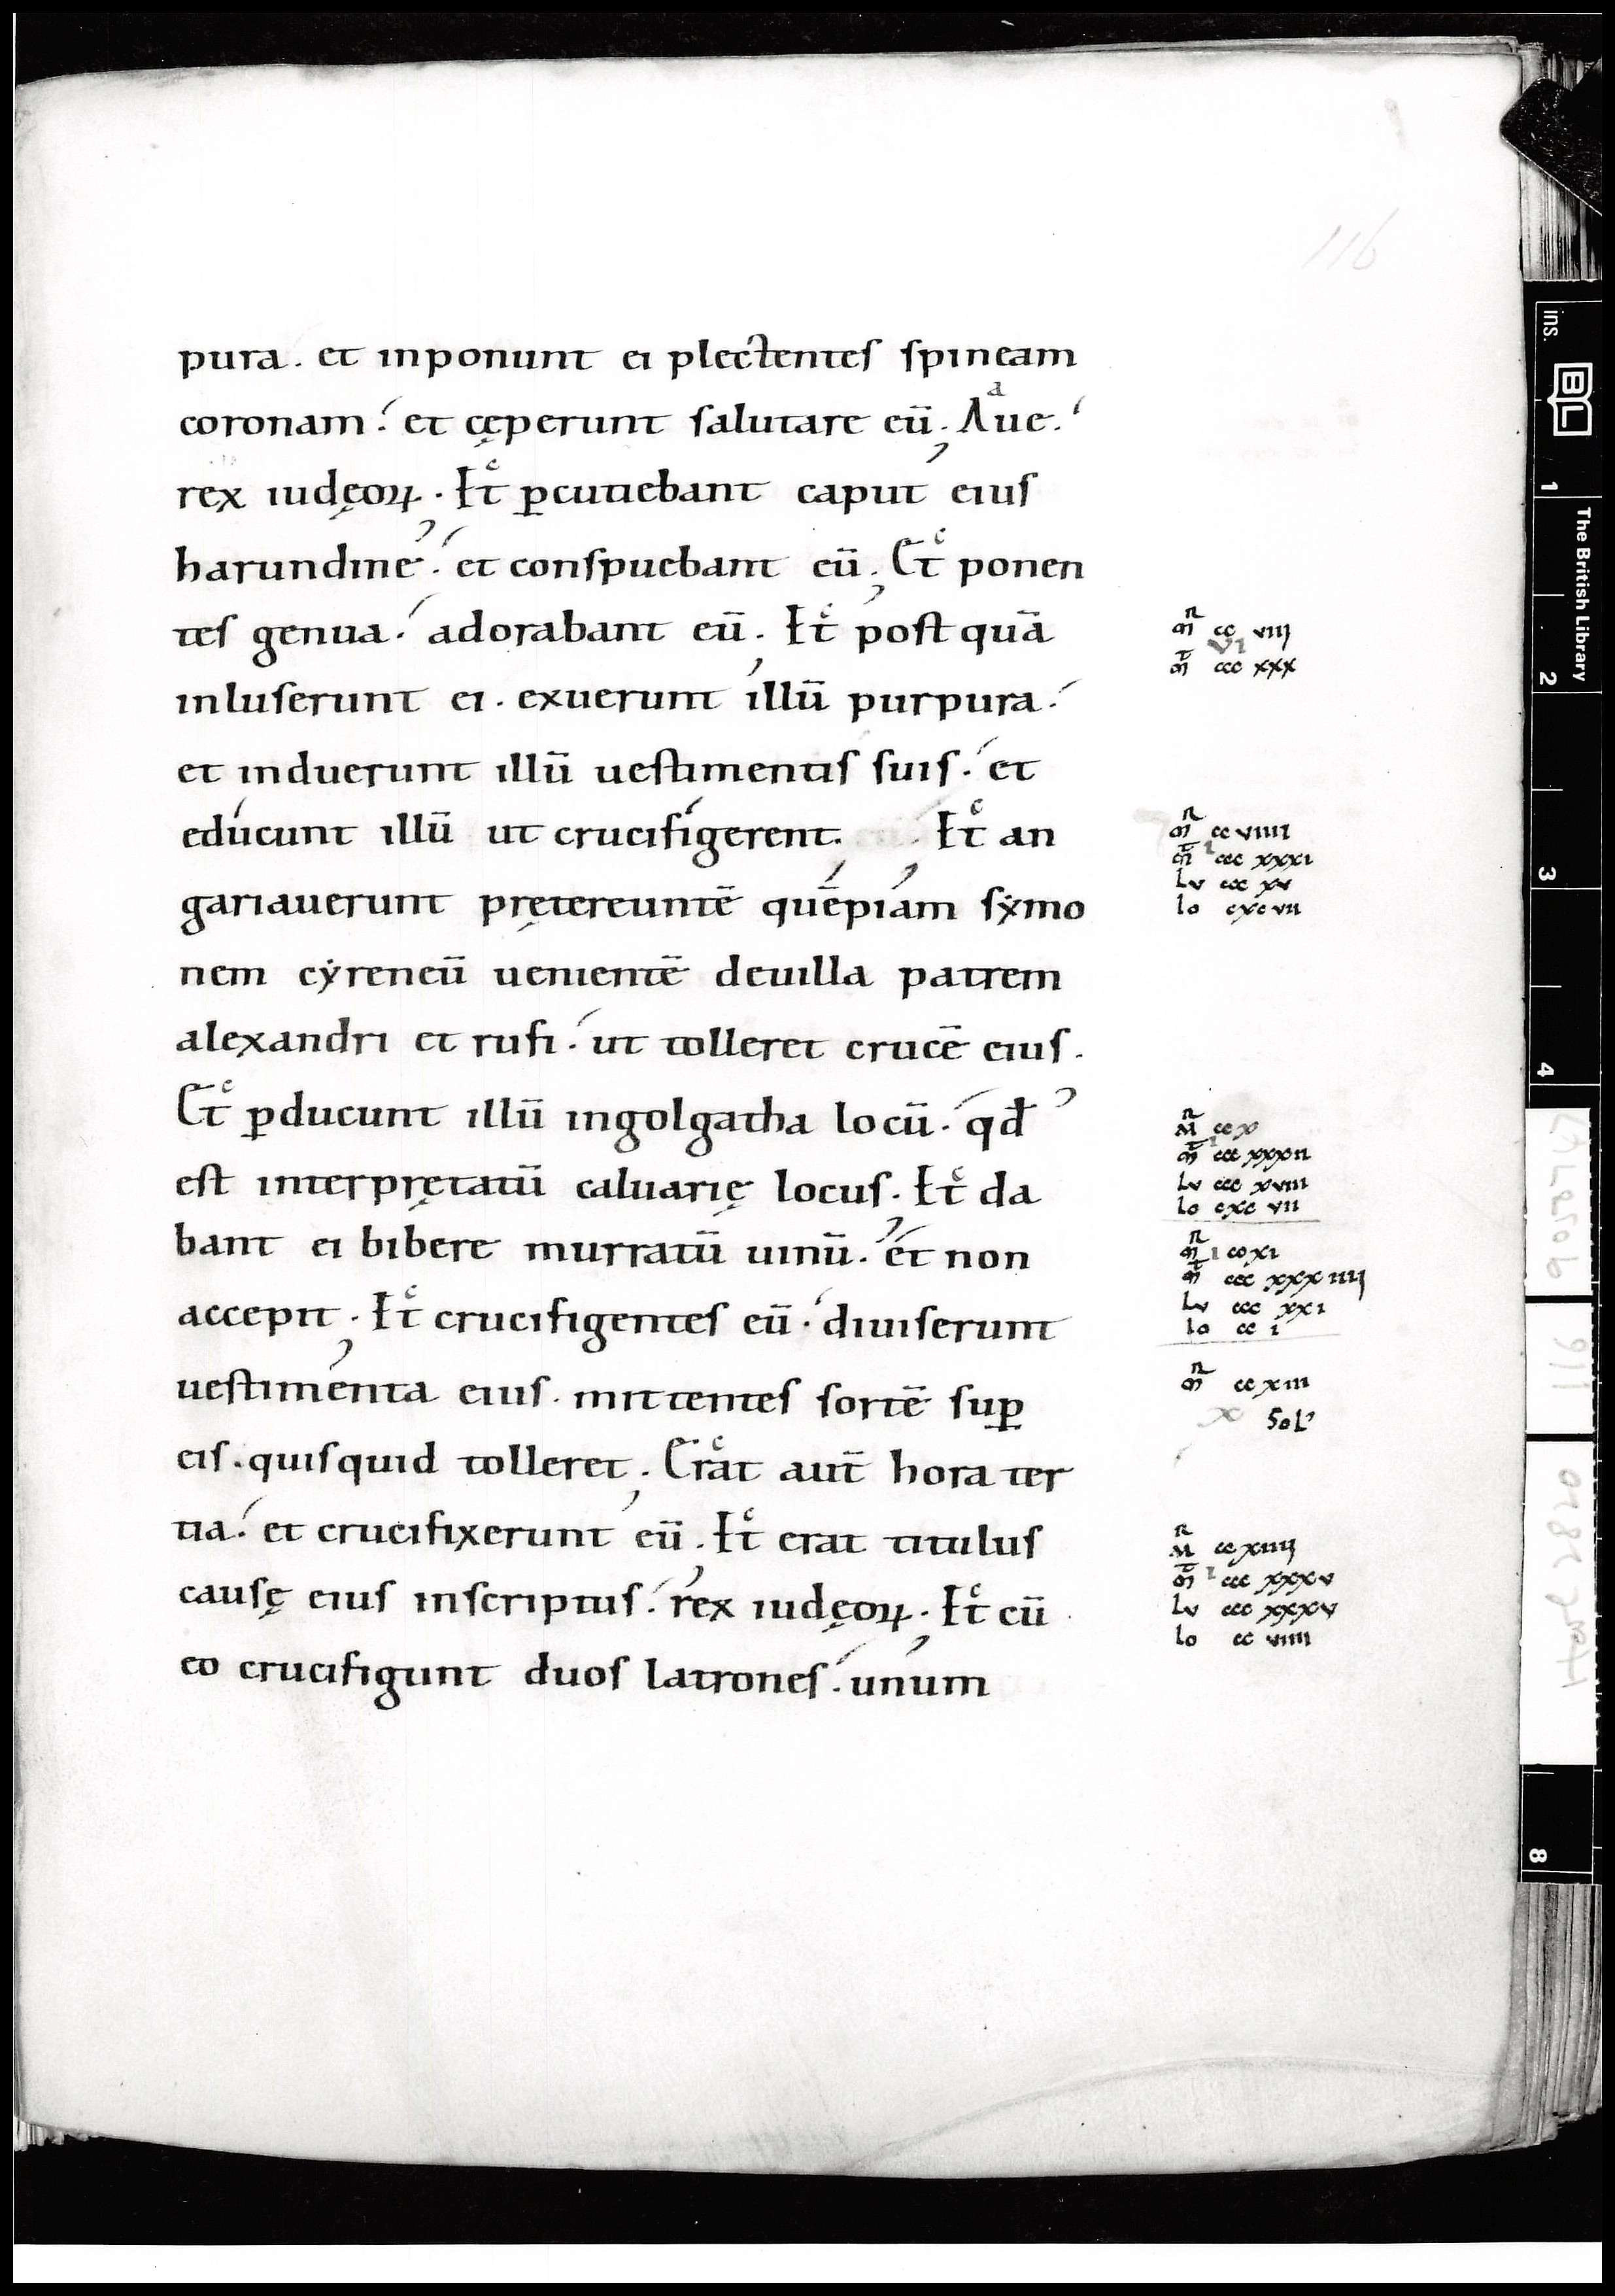 116
pura. et inponunt ei plectentes spineam
coronam. et cęperunt salutare eū. Aue.
rex iudęoꝝ. Et ꝑcutiebant caput eius
harundine. et conspuebant eū. Et ponen
tes genua. adorabant eū. Et post quā
inluserunt ei. exuerunt illū purpura.
et induerunt illū uestimentis suis. et
educunt illū ut crucifigerent. Et an
gariauerunt prętereuntē quēpiam sẏmo
nem cẏreneū uenientē deuilla patrem
alexandri et rufi. ut tolleret crucē eius.
Et ꝑducunt illū ingolgatha locū. qđ
est interprętatū caluarię locus. Et da
bant ei bibere murratū uinū. et non
accepit. Et crucifigentes eū. diuiserunt
uestimenta eius. mittentes sortē suꝑ
eis. quisquid tolleret. Erat aut̄ hora ter
tia. et crucifixerunt eū. Et erat titulus
causę eius inscriptus. rex iudęoꝝ. Et cū
eo crucifigunt duos latrones. unum
cc viii
vi
ccc xxx
cc viiii
ccc xxxi
Lu ccc xv
Io cxc vii
cc x
ccc xxxii
Lu ccc xviii
Io cxc vii
cc xi
ccc xxxiiii
Lu ccc xxi
Io cc i
cc xiii
x Sol
cc xiiii
ccc xxxv
Lu ccc xxxv
Io cc viiii
ins.
BL
The British Library
1
2
3
4
8
116